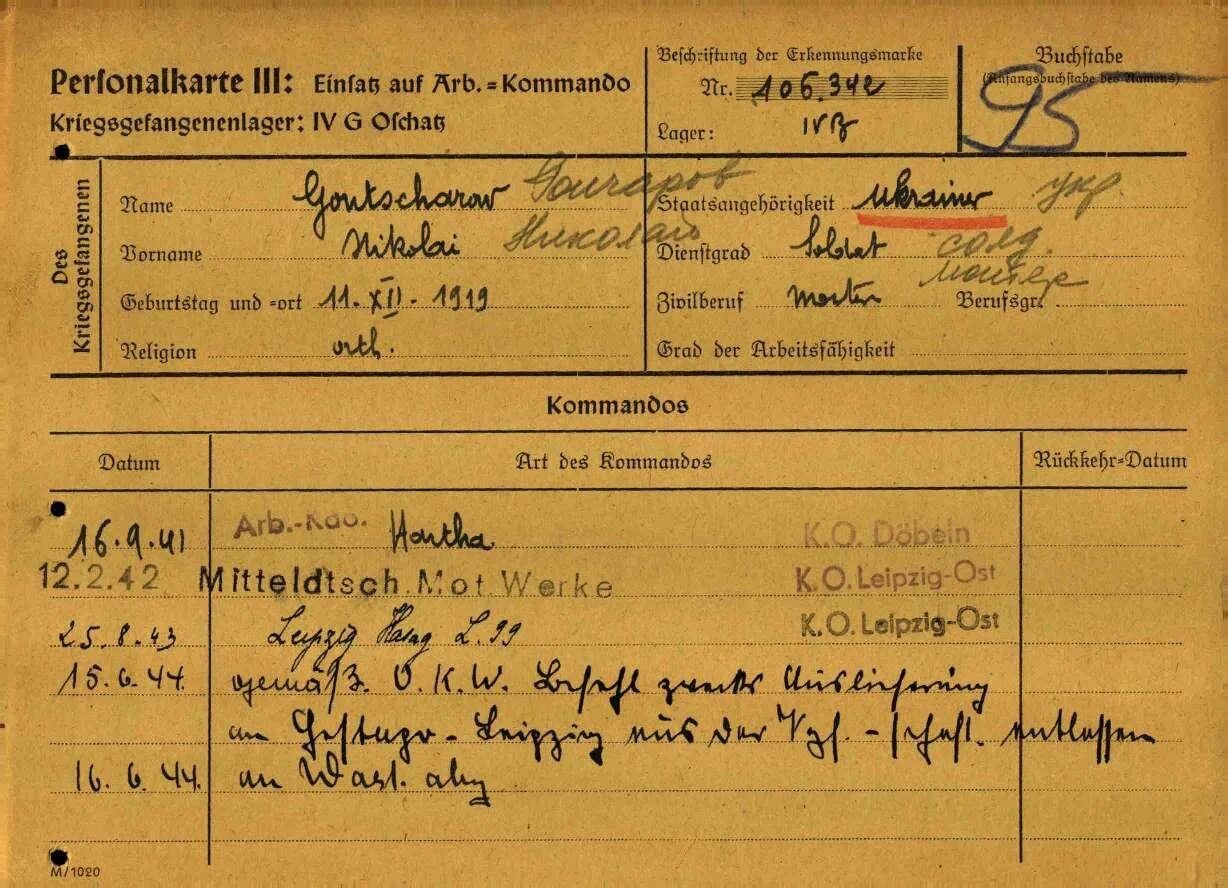 Personalkarte III: Einsatz auf Arb.=Kommando
Kriegsgefangenenlager: IV G Oschatz
Beschriftung der Erkennungsmarke
Nr. 106.342
Lager: IV B
Buchstabe
(Anfangsbuchstabe des Namens)
95
Des Kriegsgefangenen
Name Gontscharow Гончаров
Vorname Nikolai Николай
Geburtstag und =ort 11. XII. 1919
Religion orth.
Staatsangehörigkeit Ukrainer укр
Dienstgrad Soldat солд.
Zivilberuf Berufsgr.
Grad der Arbeitsfähigkeit
Kommandos
Datum Art des Kommandos Rückkehr=Datum
16.9.41 Arb.-Kdo. Hartha K.O. Döbeln
12.2.42 Mitteldtsch. Mot. Werke K.O. Leipzig-Ost
25.8.43 Leipzig Hasag L. 99 K.O. Leipzig-Ost
15.6.44. gemäß. O.K.W. Befehl zwecks Auslieferung
an Gestapo - Leipzig aus der Kgf. - schaft. entlassen
16.6.44. an Wast.
M/1020